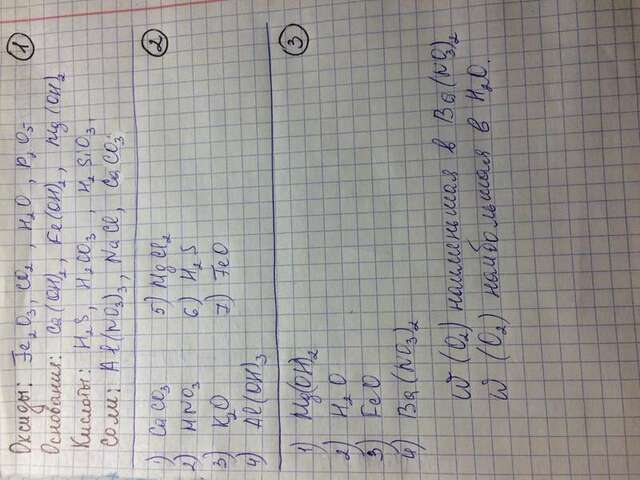 Оксиды: Fe2O3, CO2, H2O, P2O5 1
Основания: Ca(OH)2, Fe(OH)2, Mg(OH)2
Кислоты: H2S, H2CO3, H2SiO3,
Соли: Al(NO3)3, NaCl, CaCO3
1) CaCO3 5) MgCl2 2
2) HNO3 6) H2S
3) K2O 7) FeO
4) Al(OH)3
1) Mg(OH)2 3
2) H2O
3) FeO
4) Ba(NO3)2
W (O2) наименьшая в Ba(NO3)2
W (O2) наибольшая в H2O.